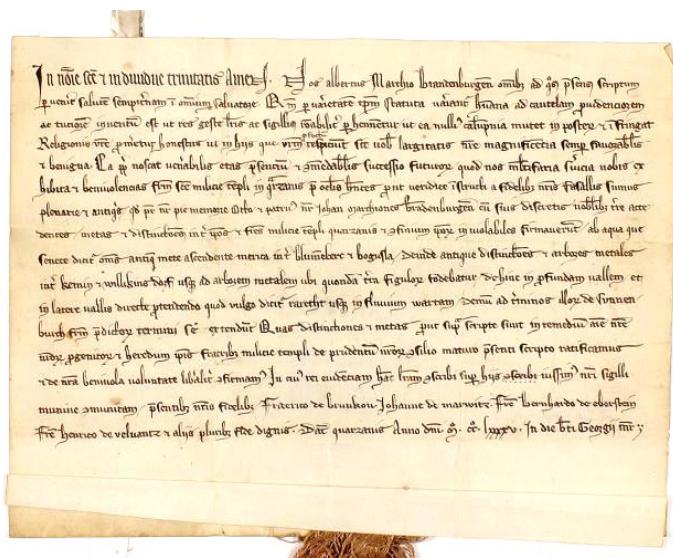 In nōie scē ⁊ indiuidue trinitatis Amen. Nos albertus Marchio Brandenburgen̄ omīb; ad q̄s p̄sens scriptum
peruen̄it salutē sempit̄nam ī omnium saluatore. Qm̄ p uarietate tp̄m statuta uariant̄ hūana ad cautelam prudenciorem
ac tuciorē inuentū est ut res geste lr̄is ac sigillis ꝑhennetur ut ea nulliꝰ calūpnia mutet in posteꝝ ⁊ īfringat
Religionis honestius ut in hiis que respiciunt sit uob̄ largitatis nr̄e magnificētia semp̄ fauorabilis
⁊ benigna. Ea p̄p̄ noscat uen̄abilis etas p̄sentiū ⁊ successio futuroꝝ quod nos mltifaria s̄uicia nobis ex
hibita ⁊ beniuolencias frm̄ scē milicie tēpli in q̄rtzanis p̄ oclis hn̄tes ꝓut ueridice īstructi a fidelib; nr̄is sumus
plenarie ⁊ antiqͥs qd̄ pr̄ nr̄ pie memorie Otto ⁊ patruꝰ nr̄ Johan marchiones brādenburgen̄ cū suis discretis nob̄lib; tr̄e acce
dentes metas ⁊ distinctōes int̄ ip̄os ⁊ frēs milicie tēpli quarzanis ꝯfinium ip̄oꝝ inuiolabiles firmauerūt ab aqua que
senece dicit̄ om̄s antiq̄ mete ascendente merica int̄ blumēberc ⁊ boguslā deinde antique distinctōes ⁊ arbores metales
int̄ kemin ⁊ willikins dorf usq; ad arborem metalem ubi quondā t̄ra figuloꝝ fodebatur dehinc in ꝓfundam uallem et
in latere uallis directe ꝓtendendo quod uulgo dicit̄ usq; in fluuium wartam demū ad t̄minos illoꝝ de
burch frm̄ p̄dictoꝝ termini se extendūt Quas distinctiones ⁊ metas ꝓut supͣ scripte sunt in remediū aīe nr̄e
nr̄oꝝ ꝓgenitoꝝ ⁊ heredum ip̄is fratrib; milicie templi de prudentū nr̄oꝝ ꝯsilio maturo p̄senti scripto ratificamus
⁊ de nr̄a beniuola uoluntate lib̄alit̄ ꝯfirmamꝰ In cuiꝰ rei euidēciam hāc lr̄am ꝯscribi sup̄ hiis ꝯscribi iussimꝰ nr̄i sigilli
munīne ꝯmunitam p̄sentib; nr̄is fidelib; Fraterico de Johanne de marwitz. Frē bernhardo de eberstein
Frē henrico de ueluantz ⁊ aliis plurib; fide dignis. Dat̄ quarzanis Anno dn̄i. m̊. c̊c̊. lxxxv. In die bt̄i Georgii mr̄